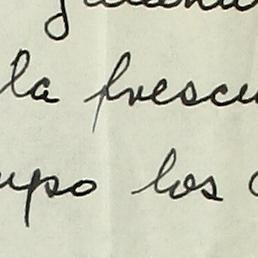 la frescu
upo los